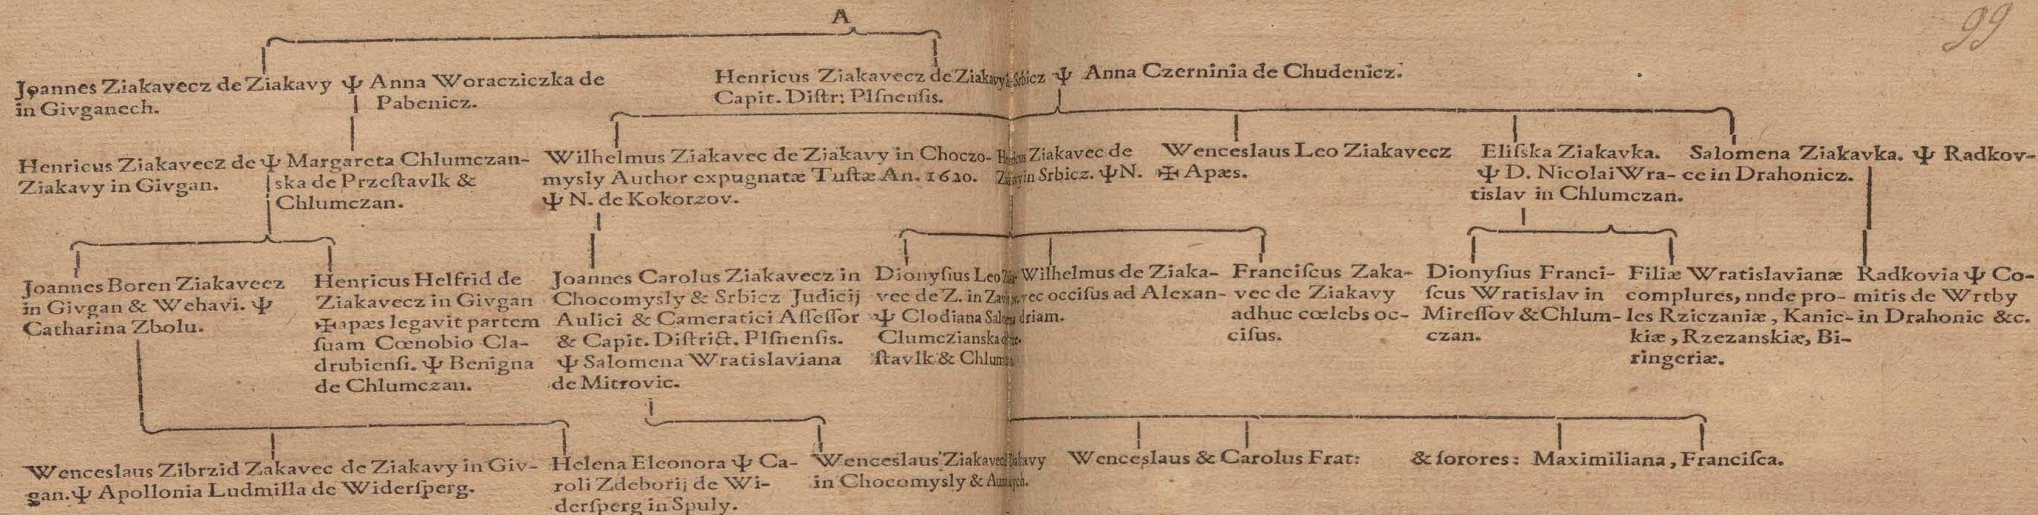 A
99
Joannes Ziakavecz de Ziakavy Ψ Anna Woracziczka de
in Givganech. Pabenicz.
Henricus Ziakavecz de Ziakavy & Srbicz Ψ Anna Czerninia de Chudenicz.
Capit. Diſtr: Plſnenſis.
Henricus Ziakavecz de Ψ Margareta Chlumczan-
Ziakavy in Givgan. ska de Przeſtavlk &
Chlumczan.
Wilhelmus Ziakavec de Ziakavy in Choczo-
mysly Author expugnatæ Tuſtæ An. 1620.
Ψ N. de Kokorzov.
Ziakavec de
in Srbicz. Ψ N.
Wenceslaus Leo Ziakavecz
✠ Apæs.
Eliſska Ziakavka.
Ψ D. Nicolai Wra-
tislav in Chlumczan.
Salomena Ziakavka. Ψ Radkov-
ce in Drahonicz.
Joannes Boren Ziakavecz
in Givgan & Wehavi. Ψ
Catharina Zbolu.
Henricus Helfrid de
Ziakavecz in Givgan
✠ apæs legavit partem
ſuam Cœnobio Cla-
drubienſi. Ψ Benigna
de Chlumczan.
Joannes Carolus Ziakavecz in
Chocomysly & Srbicz Judicij
Aulici & Cameratici Aſſeſſor
& Capit. Diſtrict. Plſnenſis.
Ψ Salomena Wratislaviana
de Mitrovic.
Dionyſius Leo
vec de Z. in
Ψ Clodiana
Clumczianska
ſtavlk & Chlum
Wilhelmus de Ziaka-
vec occiſus ad Alexan-
driam.
Franciſcus Zaka-
vec de Ziakavy
adhuc cœlebs oc-
ciſus.
Dionyſius Franci-
ſcus Wratislav in
Mireſſov & Chlum-
czan.
Filiæ Wratislavianæ
complures, nnde pro-
les Rziczaniæ, Kanic-
kiæ, Rzezanskiæ, Bi-
ringeriæ.
Radkovia Ψ Co-
mitis de Wrtby
in Drahonic &c.
Wenceslaus Zibrzid Zakavec de Ziakavy in Giv-
gan. Ψ Apollonia Ludmilla de Widerſperg.
Helena Eleonora Ψ Ca-
roli Zdeborij de Wi-
derſperg in Spuly.
Wenceslaus Ziakavec
in Chocomysly &
Wenceslaus & Carolus Frat: & ſorores: Maximiliana, Franciſca.